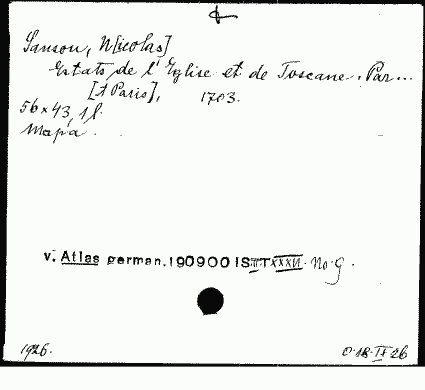 Sanson, N[icolas]
Estats de l'Eglise et de Toscane. Par...
[A Paris], 1703.
56x43, 1 f.
Mapa.
v. Atlas german. 190900 IS III T XXXVI. No 9.
1926. 0.18.IX 26